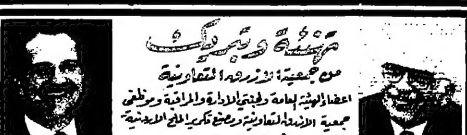 تهنئة وتبريك
من جمعية الازرق التعاونية
اعضاء الهيئة العامة ولجنتي الادارة والمراقبة وموظفي
جمعية الازرق التعاونية ومصنع تكرير الملح الاردنية